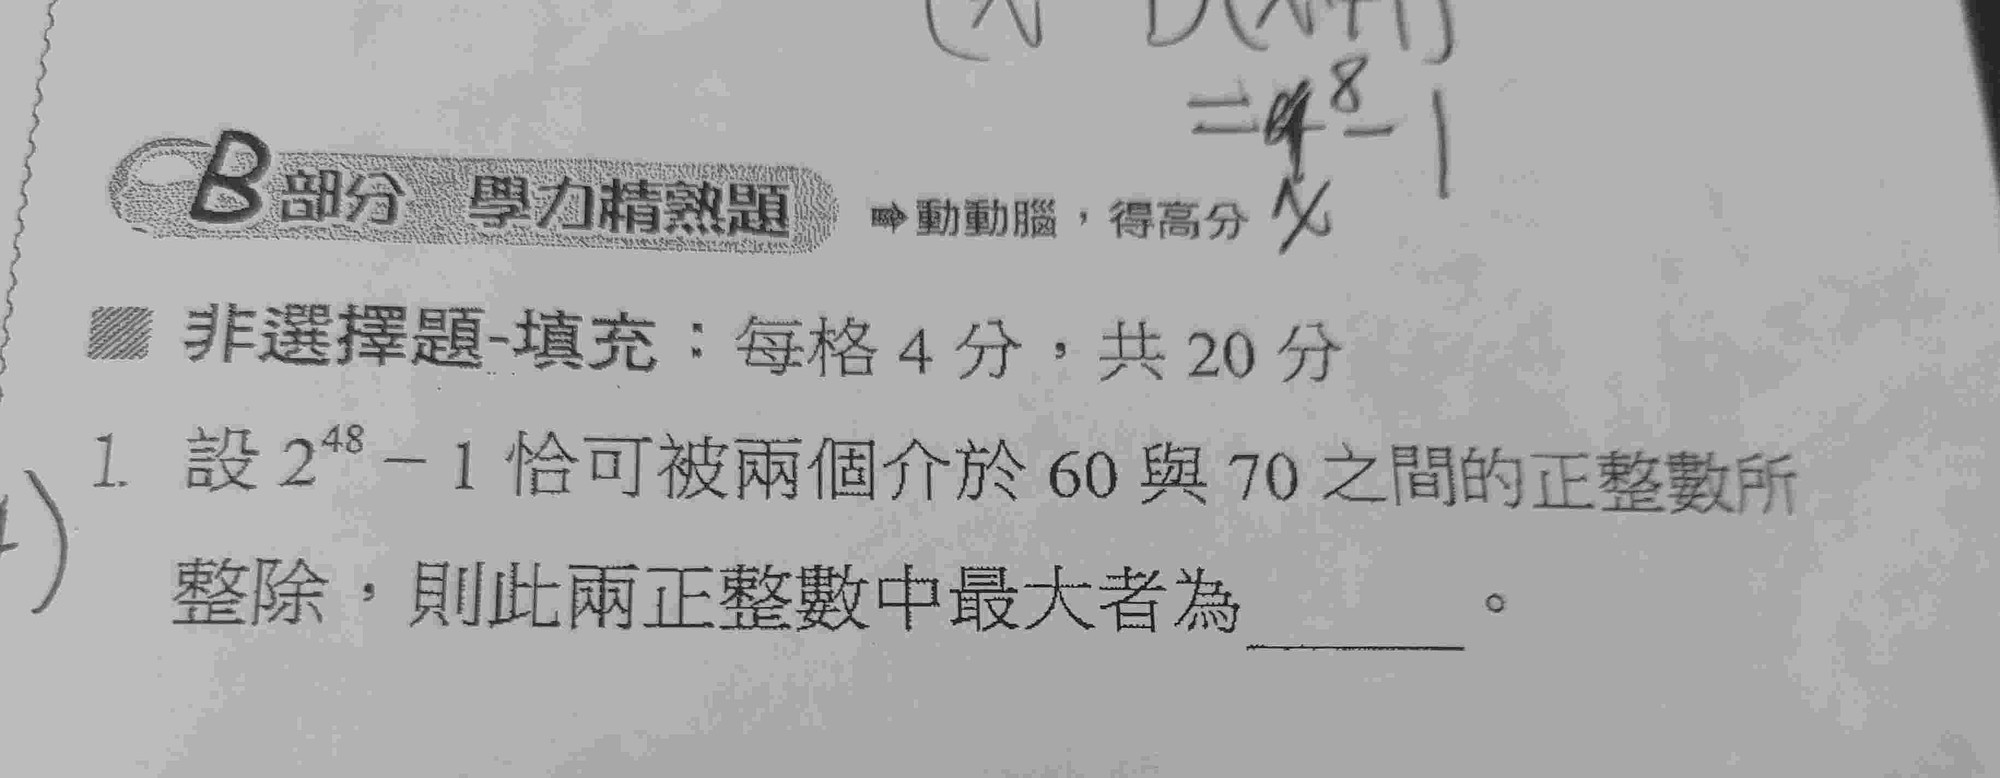 =4⁸-1
B部分 學力精熟題 ➡動動腦，得高分
非選擇題-填充：每格 4 分，共 20 分
1. 設 2⁴⁸ − 1 恰可被兩個介於 60 與 70 之間的正整數所
整除，則此兩正整數中最大者為______。